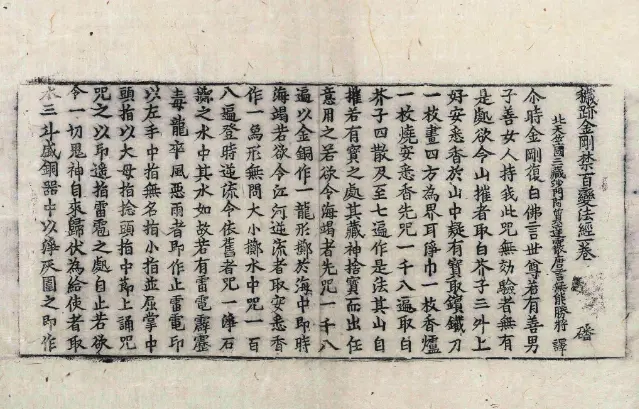 穢跡金剛禁百變法經一卷 磻
北天竺國三藏沙門阿質達霰唐言無能勝將 譯
尒時金剛復白佛言世尊若有善男
子善女人持我此呪無効驗者無有
是處欲令山摧者取白芥子三外上
好安悉香於山中疑有寶取鑌鐵刀
一枚畫四方為界耳淨巾一枚香爐
一枚燒安悉香先呪一千八遍取白
芥子四散及至七遍作是法其山自
摧若有寶之處其藏神捨寶而出任
意用之若欲令海竭者先呪一千八
遍以金銅作一龍形擲於海中即時
海竭若欲令江河逆流者取安悉香
作一萬形無問大小擲水中呪一百
八遍登時逆流令依舊者呪一淨石
擲之水中其水如故若有雷電霹靂
毒龍卒風惡雨者即作止雷電印
以左手中指無名指小指並屈掌中
頭指以大母指捻頭指中節上誦呪
呪之以印遥指雷雹之處自止若欲
令一切鬼神自來歸伏為給使者取
水三斗盛銅器中以淨灰圍之即作